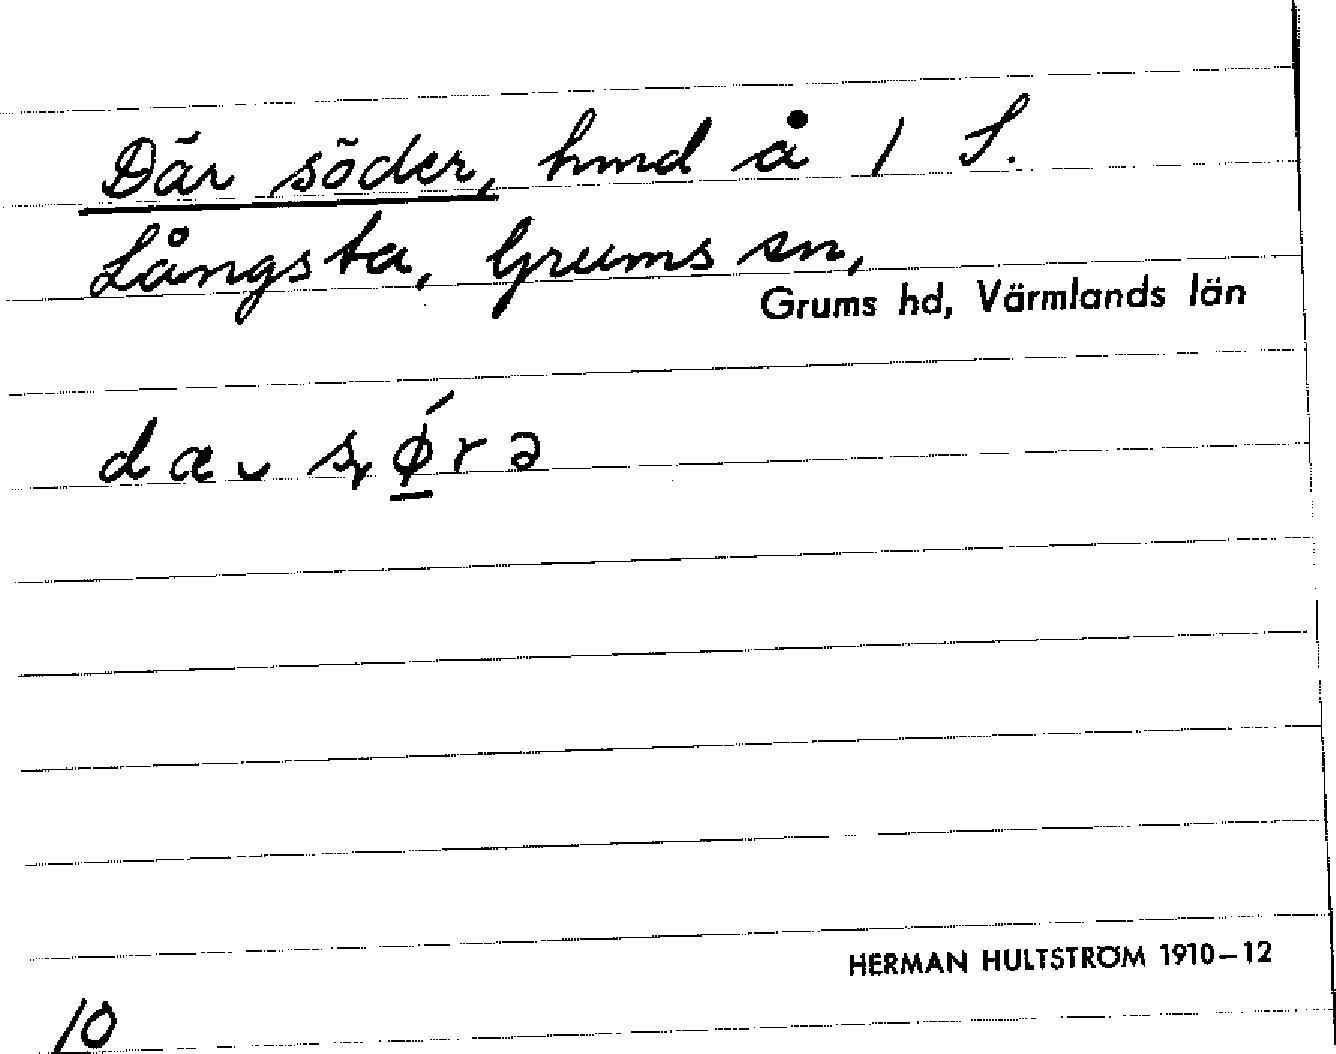 Där söder, hmd å 1 S.
Långsta, Grums sn,
Grums hd, Värmlands län
dæ sørə
HERMAN HULTSTRÖM 1910–12
10